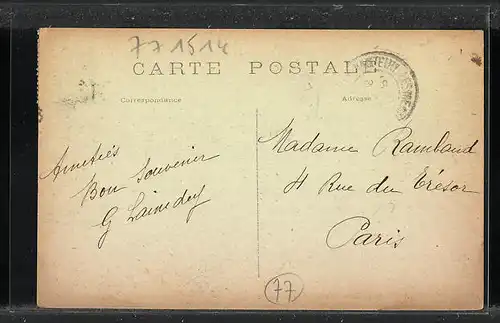 77 1514
CARTE POSTALE
Correspondance
Adresse
Amitiés
Bon souvenir
G
Madame Rambaud
4 Rue du Trésor
Paris
77